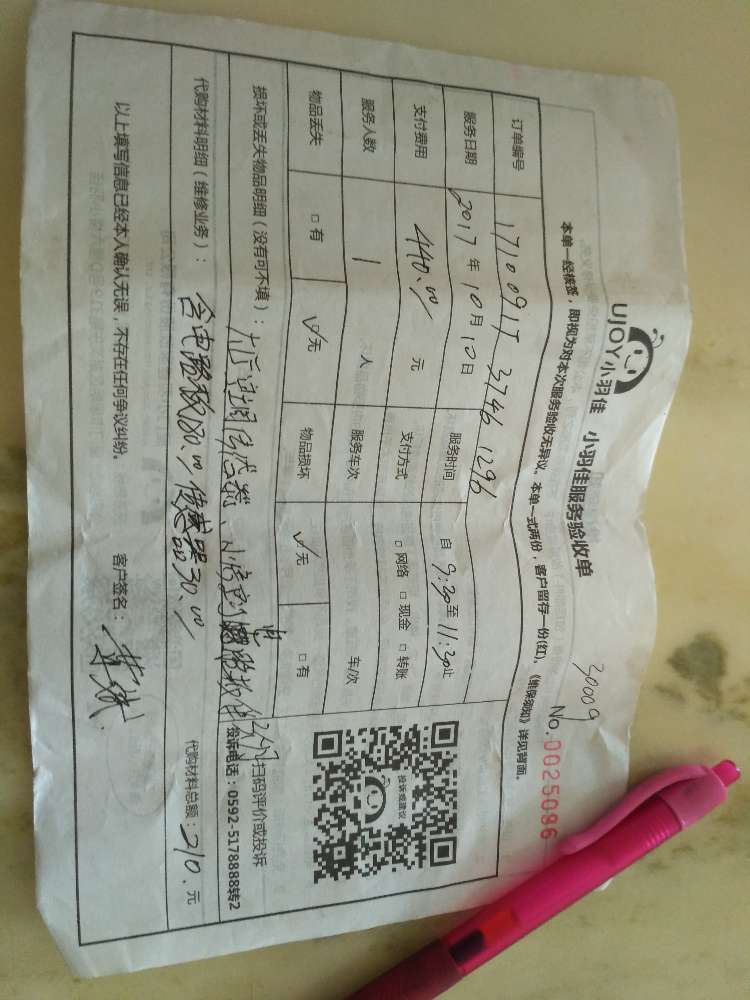 UJOY小羽佳 小羽佳服务验收单
30009
No.0025086
本单一经核签，即视为对本次服务验收无异议。本单一式两份，客户留存一份(红)。《维保须知》详见背面。
订单编号
服务日期 2017年10月10日 服务时间 自9:30至11:30止
支付费用 440.00 元 支付方式 □网络 □现金 □转账
服务人数 1 人 服务车次 车次
物品丢失 □有 ☑无 物品损坏 ☑无 □有
损坏或丢失物品明细（没有可不填）：
扫码评价或投诉
投诉电话：0592-5178888转2
投诉或建议
代购材料明细（维修业务）： 含电路板180.00 传感器30.00 代购材料总额：210.元
以上填写信息已经本人确认无误，不存在任何争议纠纷。 客户签名：